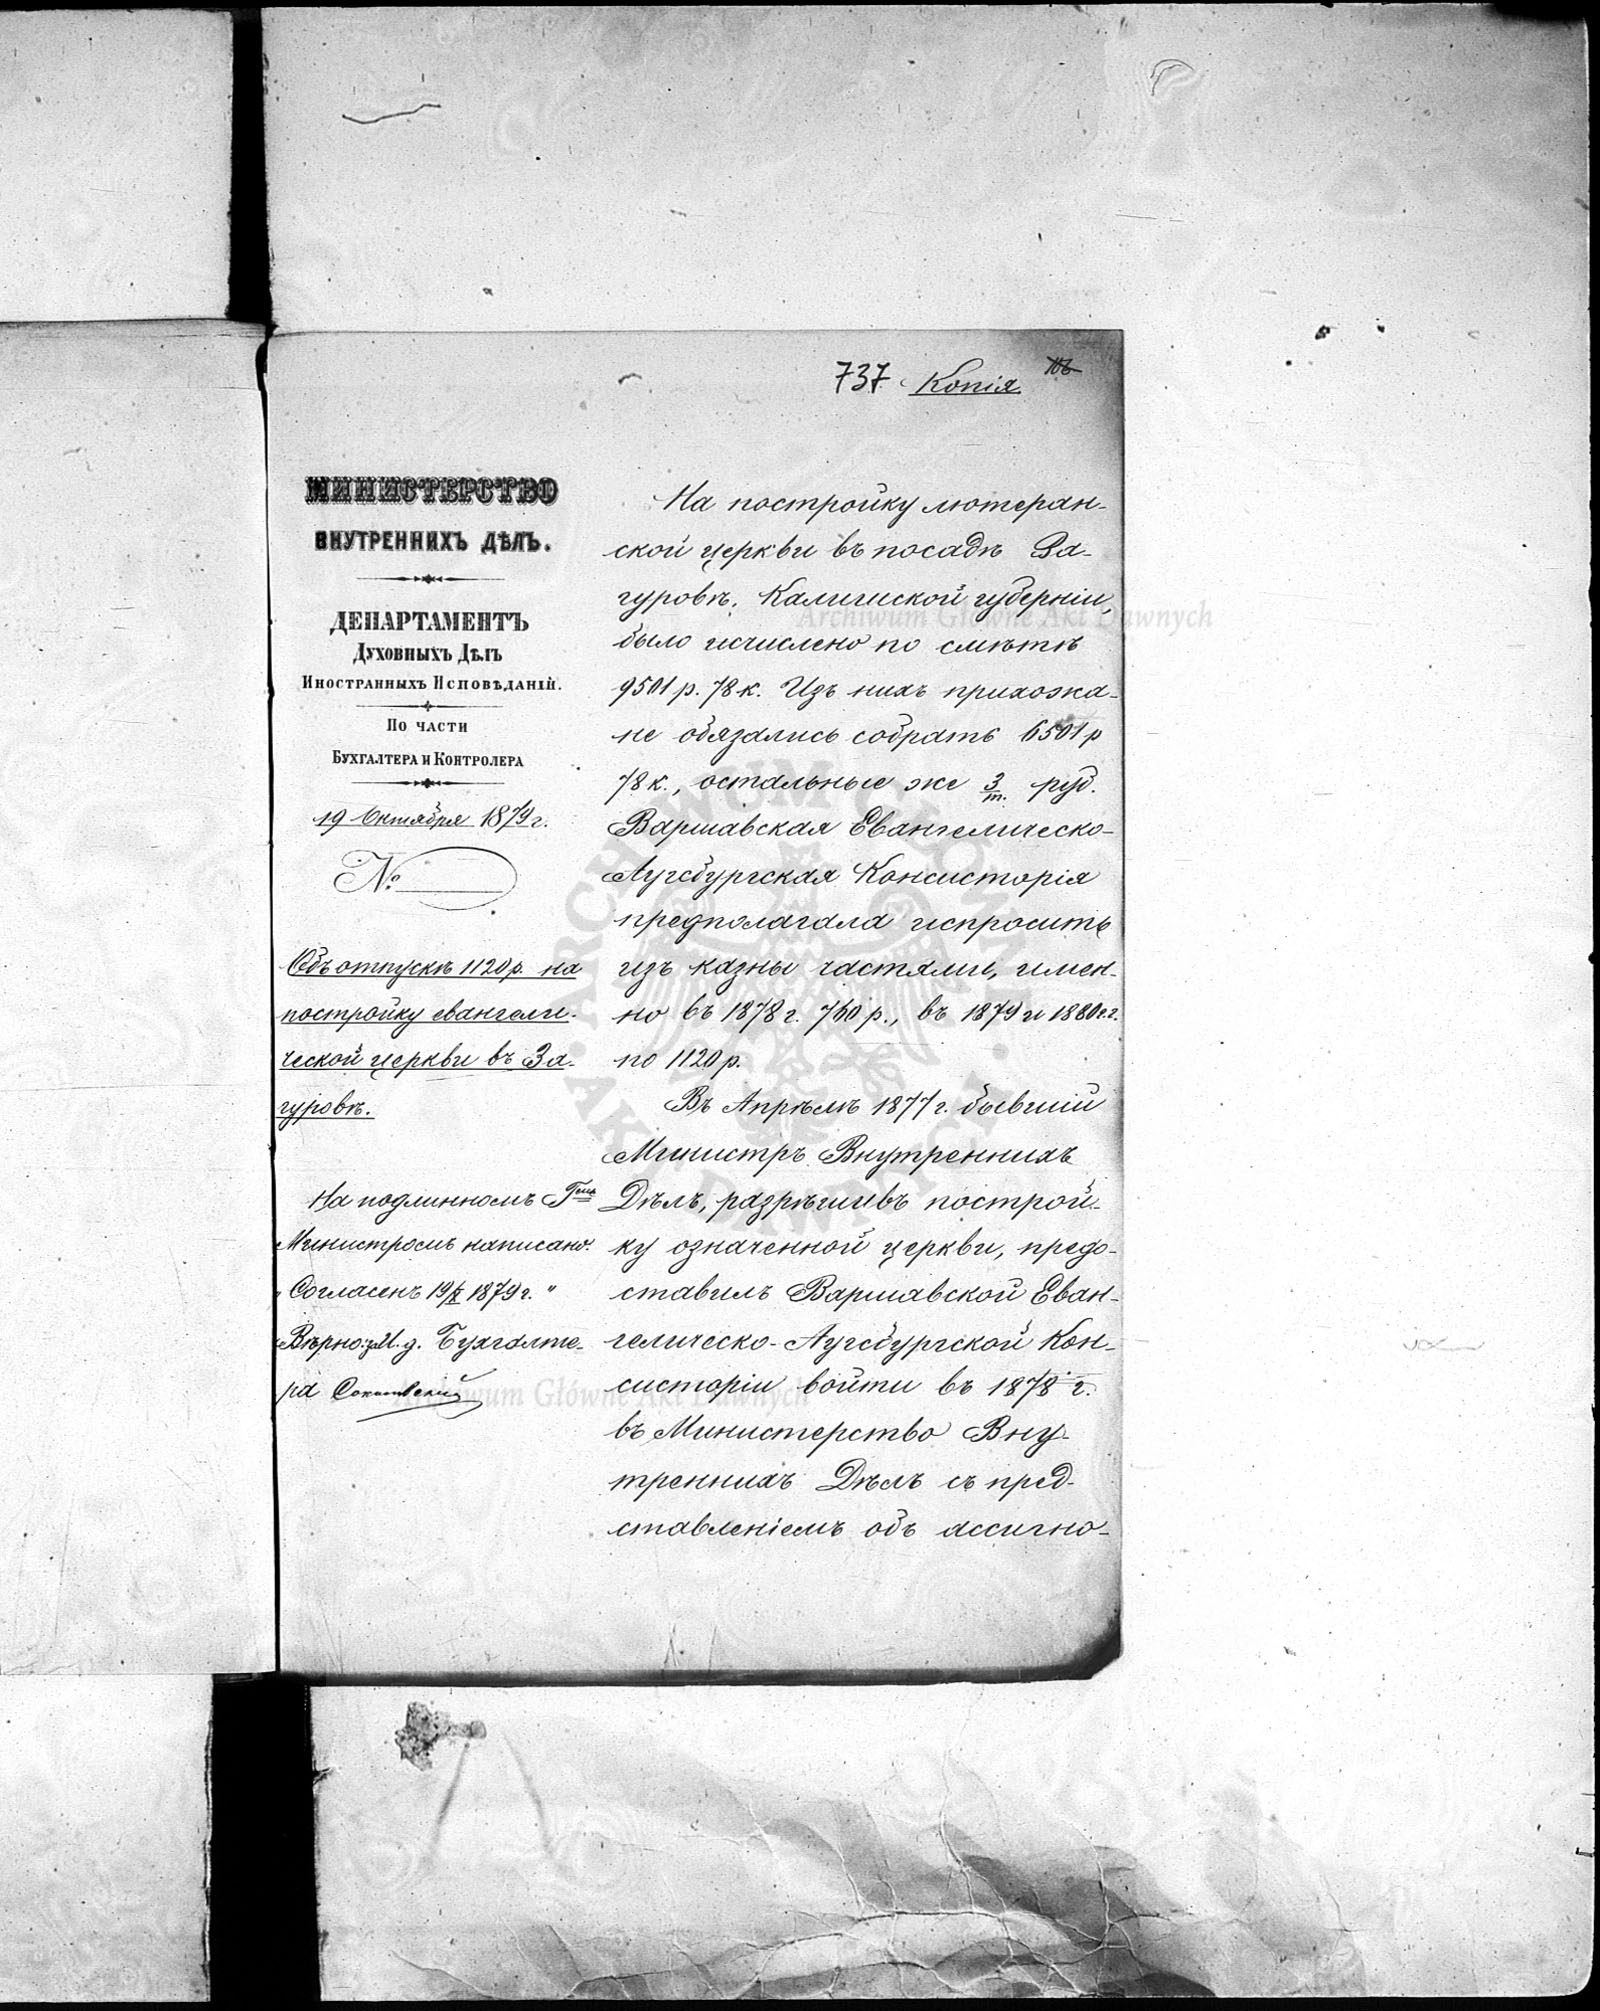 737 Копія
МИНИСТЕРСТВО
ВНУТРЕННИХЪ ДѢЛЪ.
ДЕПАРТАМЕНТЪ
ДУХОВНЫХЪ ДѢЛЪ
ИНОСТРАННЫХЪ ИСПОВѢДАНІЙ.
ПО ЧАСТИ
БУХГАЛТЕРА И КОНТРОЛЕРА
19 Октября 1879 г.
№
Объ отпускѣ 1120 р. на
постройку евангели-
ческой церкви въ За-
гуровѣ.
На подлинномъ Гмъ
Министромъ написано:
"Согласенъ 19/X 1879 г."
Вѣрно: за И. д. Бухгалте-
ра
На постройку лютеран-
ской церкви въ посадѣ За-
гуровѣ, Калишской губерніи,
было исчислено по смѣтѣ
9501 р. 78 к. Изъ нихъ прихожа-
не обязались собрать 6501 р
78 к., остальные же 3/т. руб.
Варшавская Евангелическо-
Аугсбургская Консисторія
предполагала испросить
изъ казны частями, имен-
но въ 1878 г. 760 р., въ 1879 и 1880 г.г.
по 1120 р.
Въ Апрѣлѣ 1877 г. бывшій
Министръ Внутреннихъ
Дѣлъ, разрѣшивъ построй-
ку означенной церкви, предо-
ставилъ Варшавской Еван-
гелическо-Аугсбургской Кон-
систоріи войти въ 1878 г.
въ Министерство Вну-
треннихъ Дѣлъ съ пред-
ставленіемъ объ ассигно-
Archiwum Główne Akt Dawnych
Archiwum Główne Akt Dawnych
ARCHIWUM GŁÓWNE AKT DAWNYCH